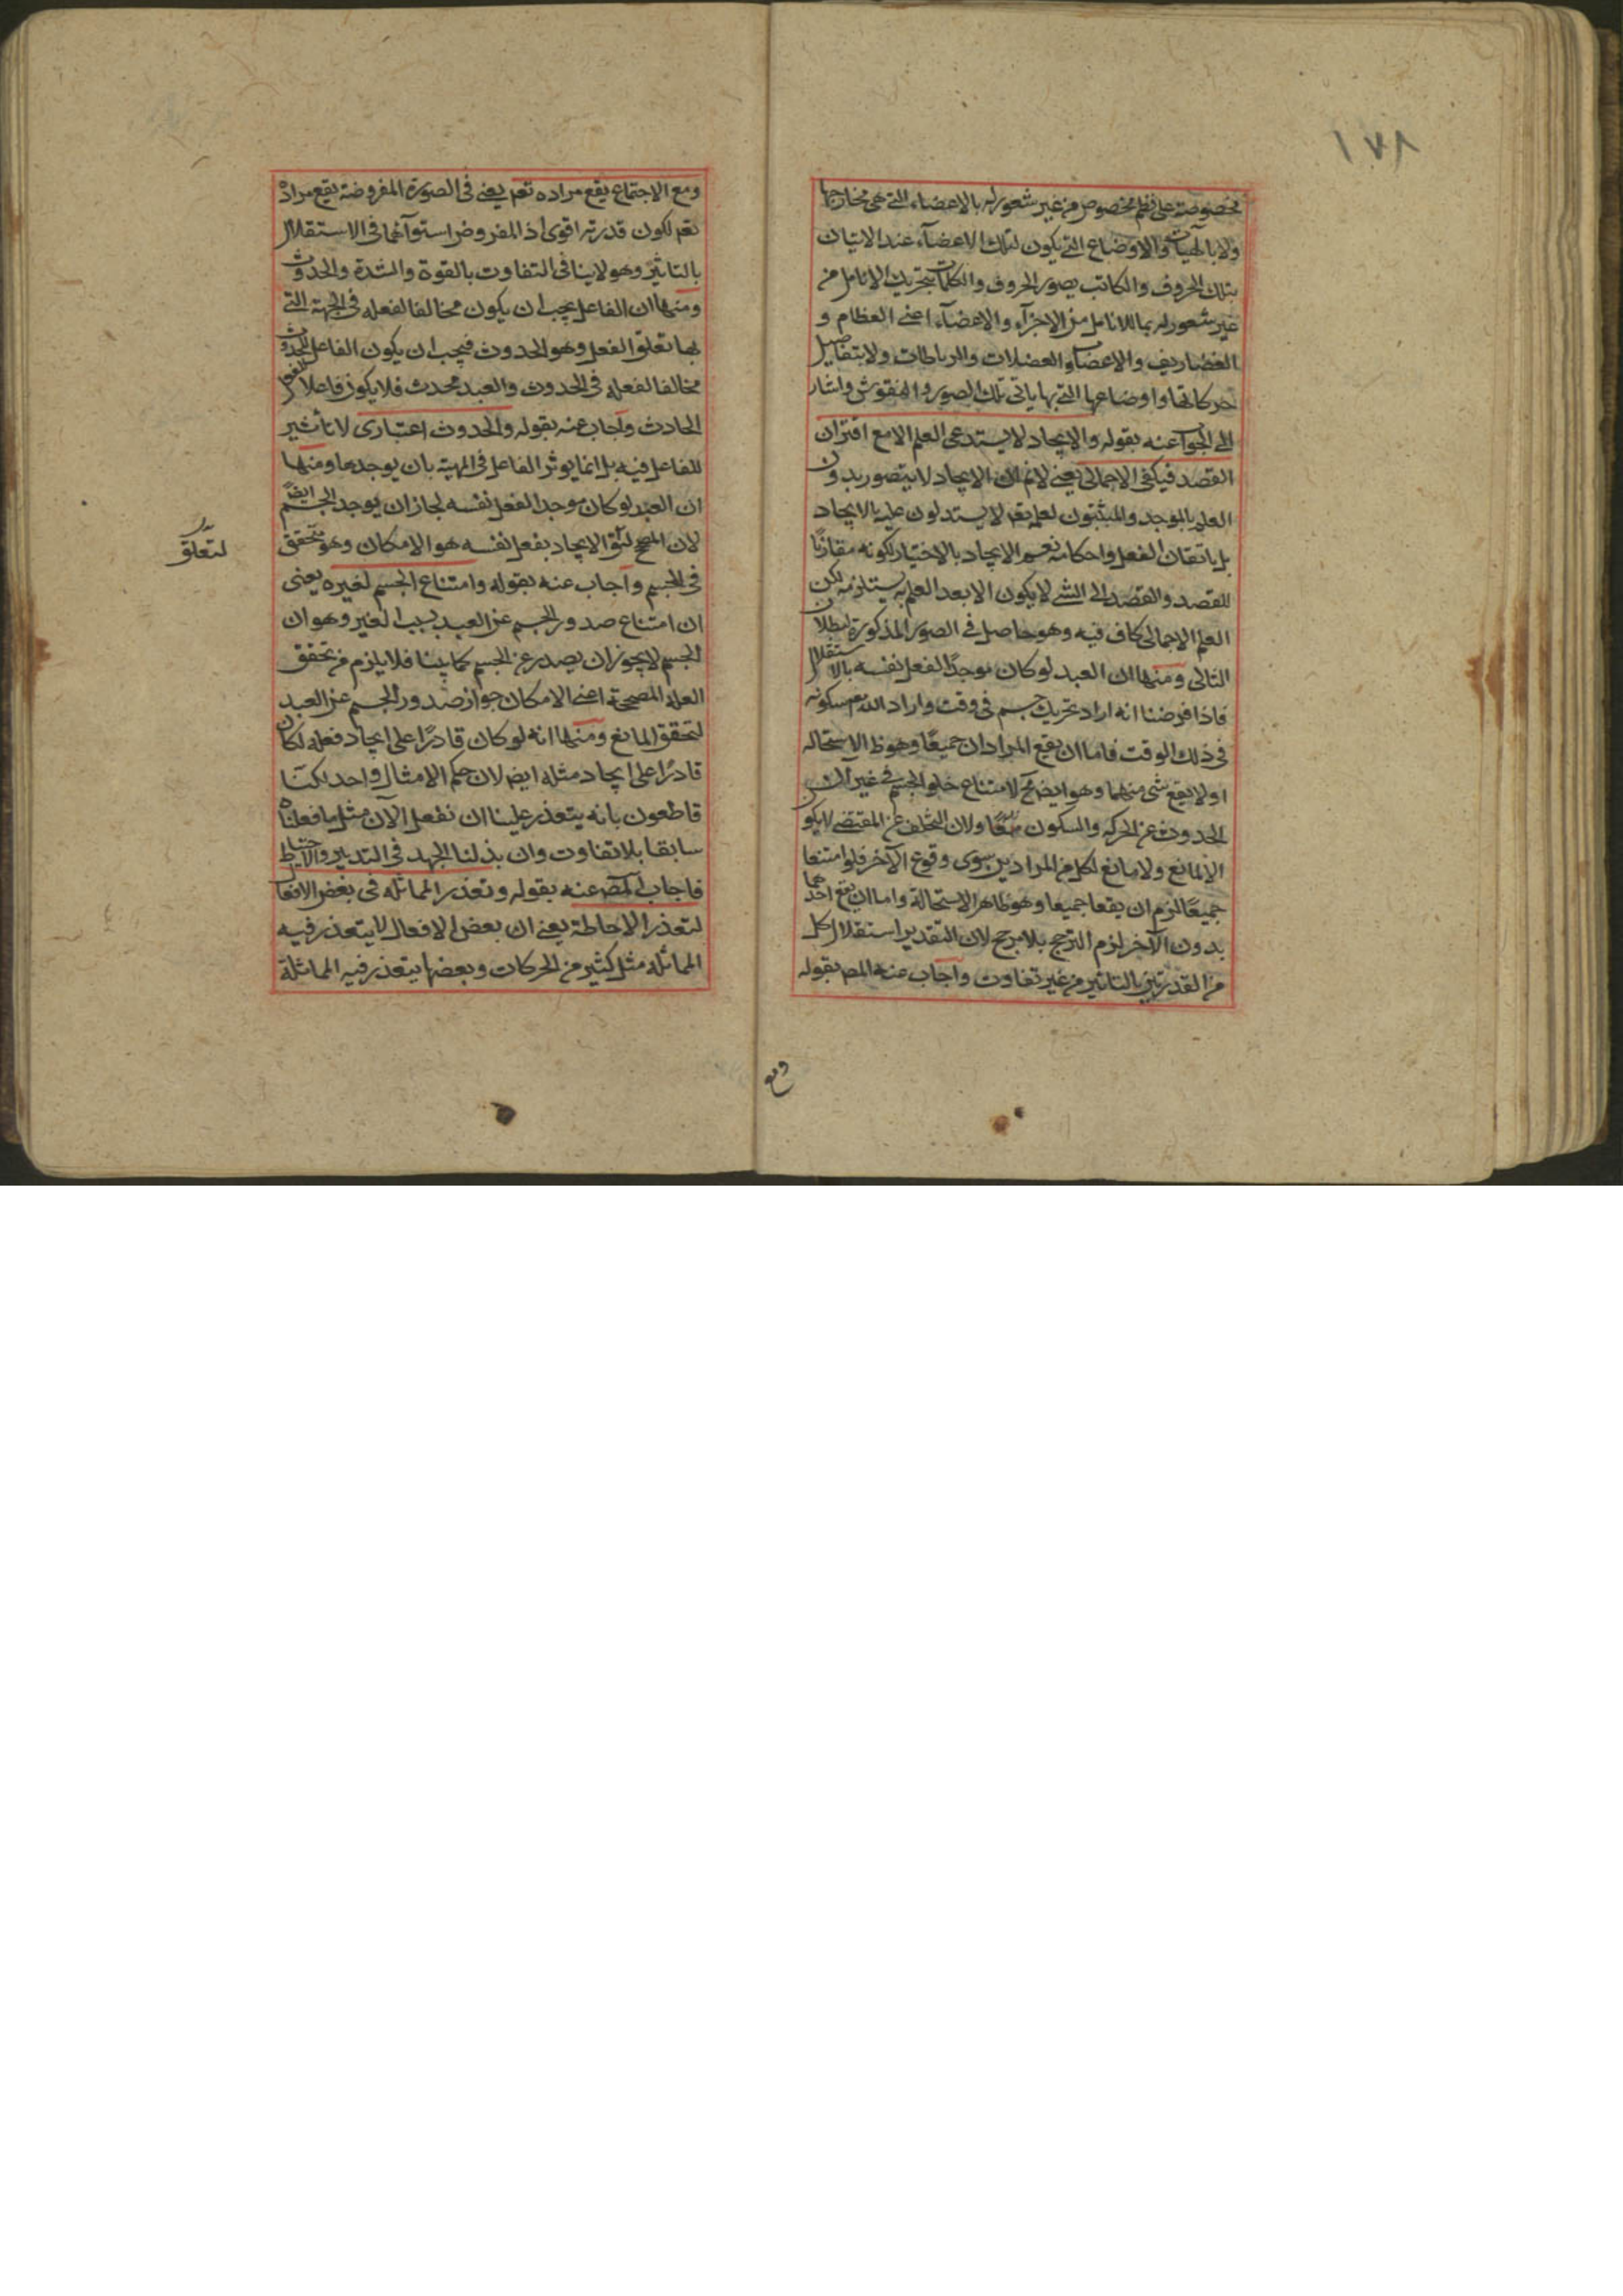 ١٧٨
مخصوصة على نظم مخصوص من غير شعور له بالاعضاء التي هي مخارجها
ولا بالهيات والاوضاع التي يكون لتلك الاعضآء عند الاتيان
بتلك الحروف والكاتب يصور الحروف والكلمات بتحريك الانامل من
غير شعور له بما للانامل من الاجزآء والاعضآء اعنى العظام و
الغضاريف والاعصاب والعضلات والرباطات ولا بتفاصيل
حركاتها واوضاعها التي بها ياتى تلك الصور والنقوش واشار
الى الجواب عنه بقوله والايجاد لا يستدعى العلم الا مع اقتران
القصد فيكفى الاجمالى يعنى لانم ان الايجاد لا يتصور بدون
العلم بالموجد والمثبتون لعلمه تعم لا يستدلون عليه بالايجاد
بل باتقان الفعل واحكامه نعم الايجاد بالاختيار لكونه مقارنًا
للقصد والقصد الى الشى لا يكون الا بعد العلم به يستلزمه لكن
العلم الاجمالى كاف فيه وهو حاصل فى الصور المذكورة لبطلان
التالى ومنها ان العبد لو كان موجدًا لفعل نفسه بالاستقلال
فاذا فرضنا انه اراد تحريك جسم فى وقت واراد الله تعم سكونه
فى ذلك الوقت فاما ان يقع المرادان جميعًا وهو ظ الاستحاله
او لا يقع شى منهما وهو ايضا مح لامتناع خلو الجسم فى غير ان
الحدوث عن الحركه والسكون معًا ولان التخلف عن المقتضى لا يكون
الا لمانع ولا مانع لكل من المرادين سوى وقوع الآخر فلو امتنعا
جميعًا لزم ان يقعا جميعا وهو ظاهر الاستحالة واما ان يقع احدهما
بدون الآخر لزم الترجيح بلا مرجح لان التقدير استقلال كل
من القدرتين بالتاثير من غير تفاوت واجاب عنه المصـ بقوله
ومع
ومع الاجتماع يقع مراده تعم يعنى فى الصورة المفروضة يقع مراده
تعم لكون قدرته اقوى اذ المفروض استوآئهما فى الاستقلال
بالتاثير وهو لا ينافى التفاوت بالقوة والشدة والحدوث
ومنها ان الفاعل يجب ان يكون مخالفا لفعله فى الجهة التى
بها تعلق الفعل وهو الحدوث فيجب ان يكون الفاعل للحدوث
مخالفا لفعله فى الحدوث والعبد محدث فلا يكون فاعلا لفعل
الحادث واجاب عنه بقوله والحدوث اعتبارى لا تأثير
للفاعل فيه بل انما يوثر الفاعل فى المهيته بان يوجدها ومنها
ان العبد لو كان موجدا لفعل نفسه لجاز ان يوجد الجسم ايضًا
لان المصحح لتعلق الايجاد بفعل نفسه هو الامكان وهو متحقق
لتعلّق
فى الجسم واجاب عنه بقوله وامتناع الجسم لغيره يعنى
ان امتناع صدور الجسم عن العبد بسبب الغير وهو ان
الجسم لا يجوز ان يصدر عن الجسم كما بينا فلا يلزم من تحقق
العله المصححة اعنى الامكان جواز صدور الجسم عن العبد
لتحقق المانع ومنها انه لو كان قادرًا على ايجاد فعله لكان
قادرًا على ايجاد مثله ايضا لان حكم الامثال واحد لكنّا
قاطعون بانه يتعذر علينا ان نفعل الآن مثل ما فعلناه
سابقا بلا تفاوت وان بذلنا الجهد فى التدبير والاحتياط
فاجاب المصـ عنه بقوله وتعذر المماثله فى بعض الافعال
لتعذر الاحاطة يعنى ان بعض الافعال لا يتعذر فيه
المماثله مثل كثير من الحركات وبعضها يتعذر فيه المماثلة